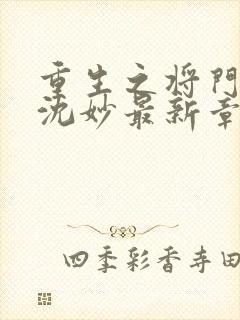 重生之将門
沈妙最新章
四季彩香寺田